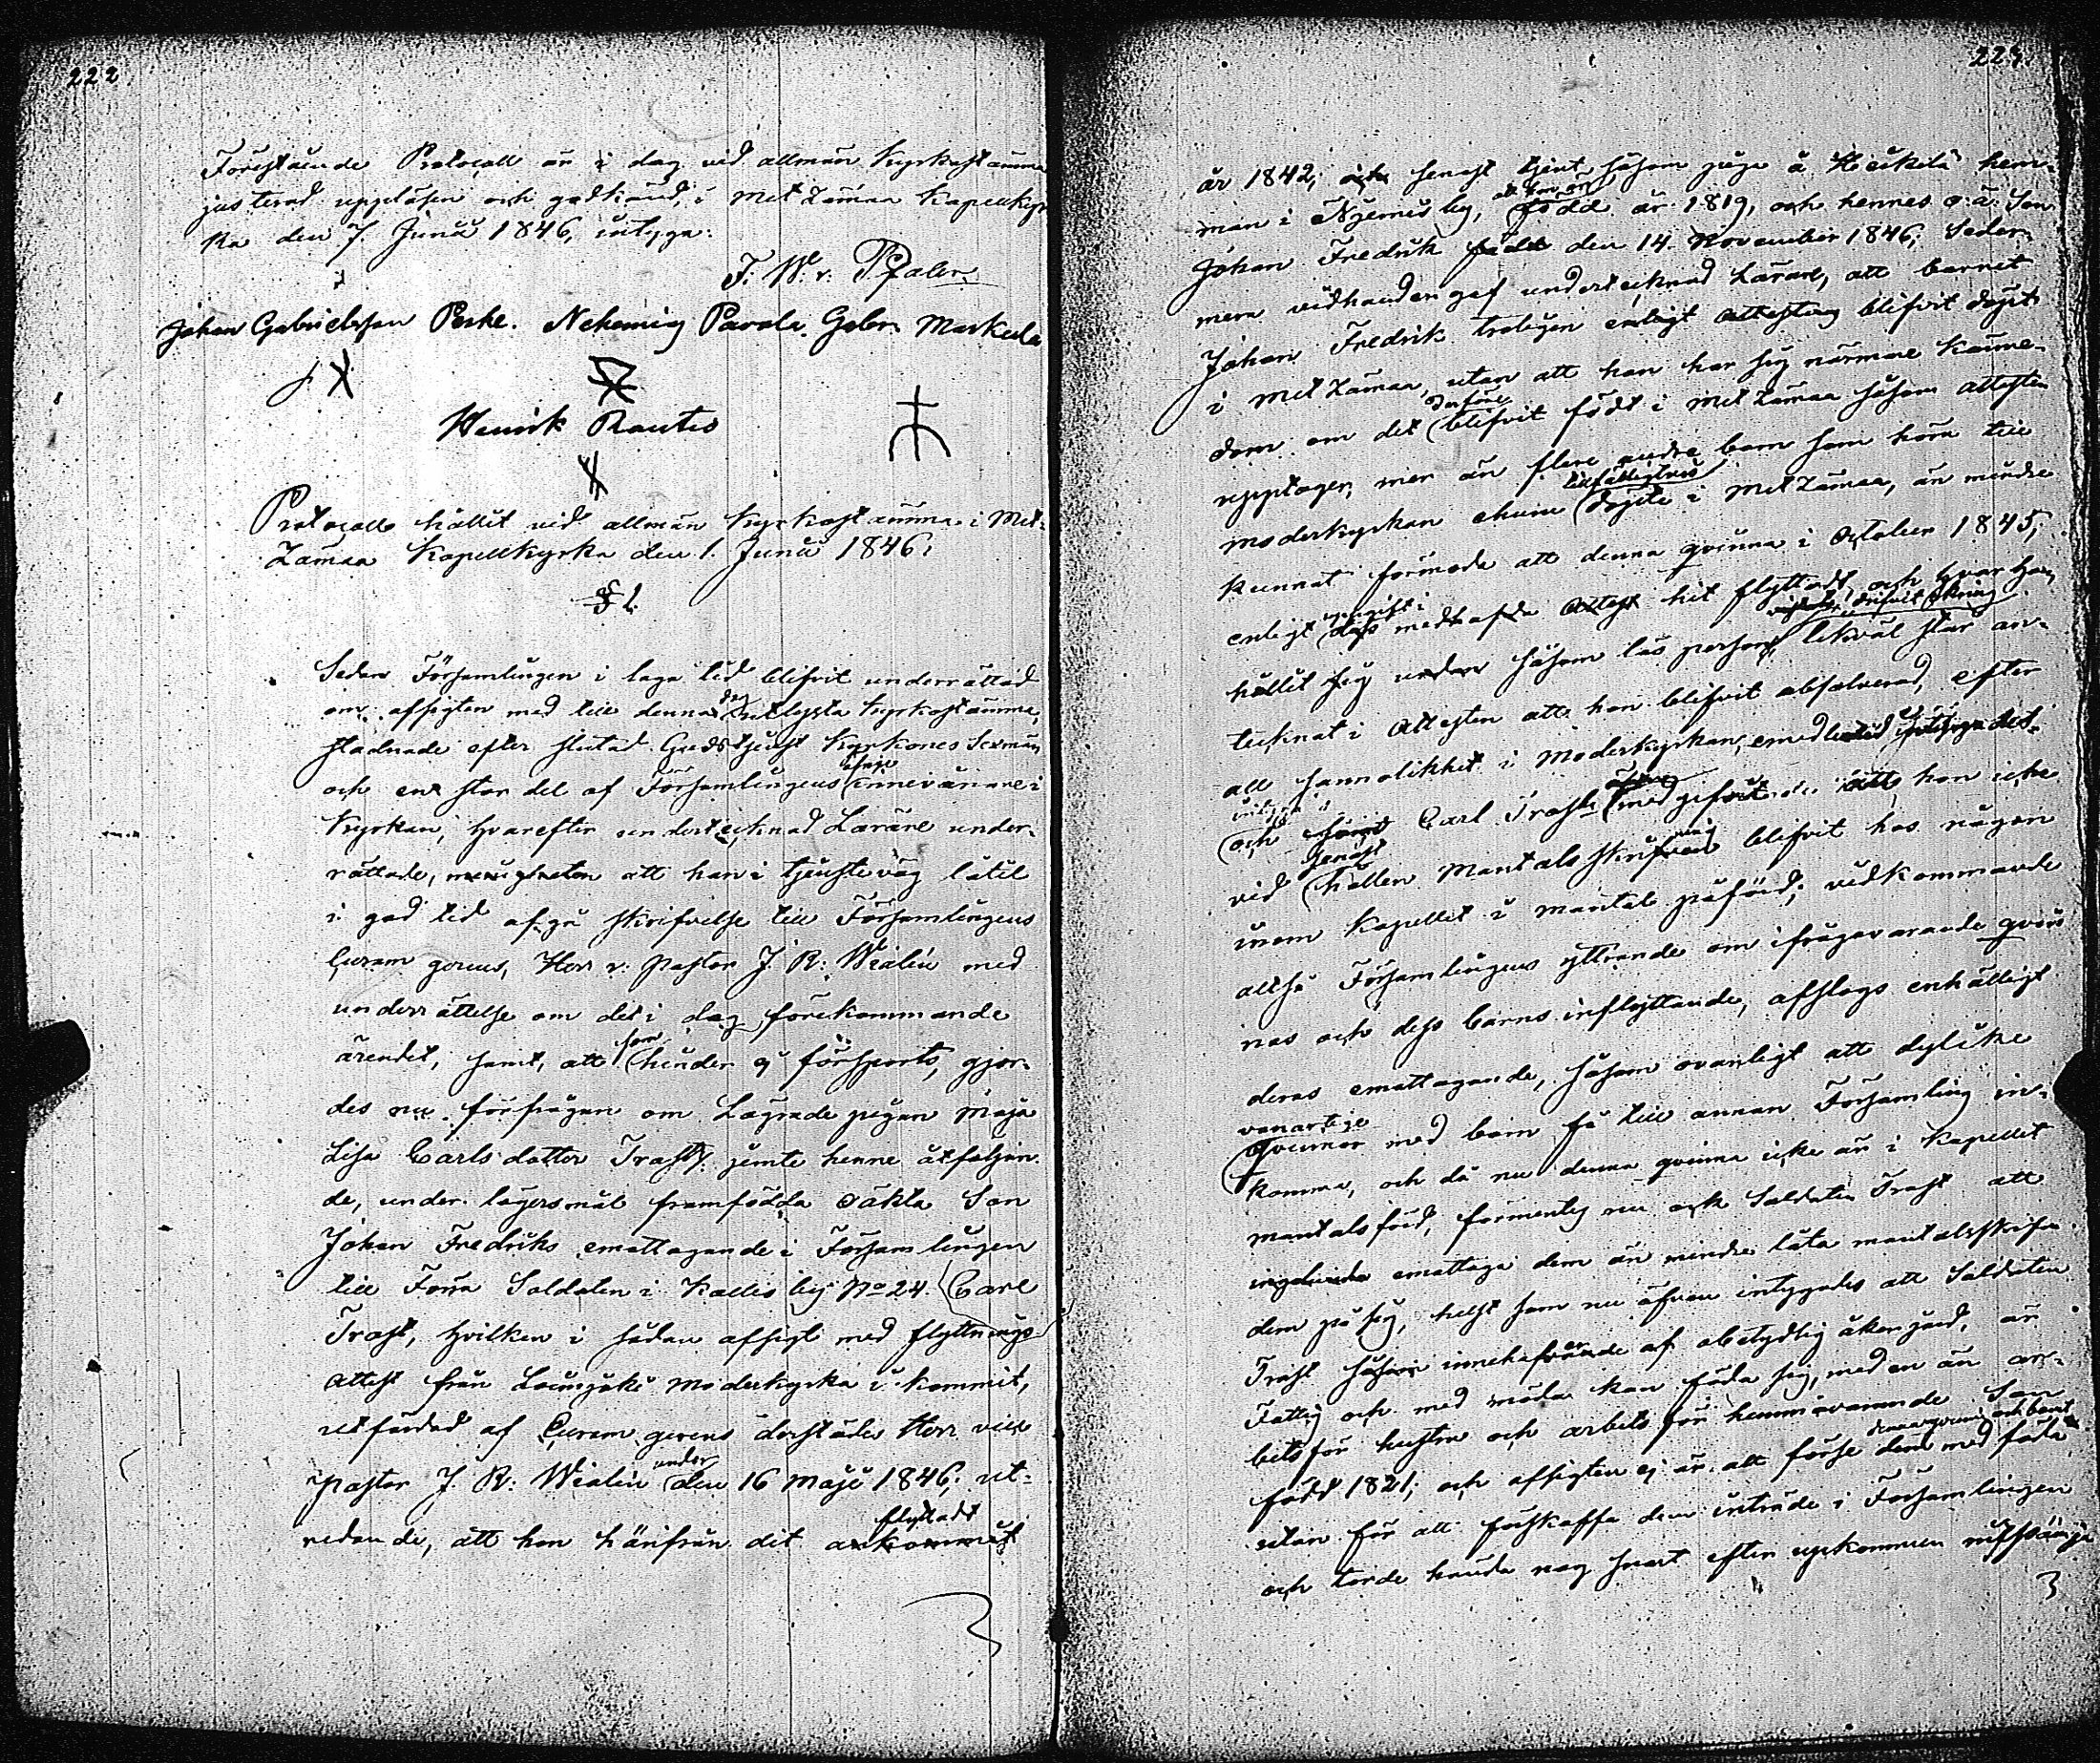 222
Förestående Protocoll är i dag vid allmän Kyrkostämma
justerad uppläsen och godkänd; i Metzämaa Kapellkyr
ka den 7. Junii 1846, intyga:
F. W. v. Pfaler
Johan Gabrielsson Perke. Nehemia Pavola. Gabr. Markula
Henrik Rautio
Protocoll hållit vid allmän Kyrkostämma i Met-
zämaa Kapellkyrka den 1. Junii 1846.
§ 1.
Sedan Församlingen i laga tid blifvit underrättad
om afsigten med till denna dag utlysta Kyrkostämma,
stadnade efter slutad Gudstjenst Kyrkones Sexmän
och en stor del af Församlingens öfrige innevånare i
Kyrkan, hvarefter undertecknad Lärare under-
rättade, menigheten att han i tjensteväg låtit
i god tid afgå skrifvelse till Församlingens
Curam gerens, Herr v. Pastor J. R. Wialén med
underrättelse om det i dag förekommande
ärendet, samt, att som hinder ej försports, gjor-
des nu förfrågan om Lägrade pigan Maja
Lisa Carlsdotter Trast, jemte henne åtföljan
de, under lägersmål framfödda oäkta Son
Johan Fredriks emottagande i Församlingen
till Förra Soldaten i Kallis by No 24. Carl
Trast, hvilken i sådan afsigt med flyttnings
attest från Loimijoki Moderkyrka inkommit,
utfärdad af Curam gerens derstädes Herr vice
pastor J. R. Wialén under den 16 Maji 1846; ut-
redande, att hon härifrån dit ankommit flyttadt
223.
år 1842, och senast tjent såsom piga å Heikilä hem-
man i Äijemis by, att hon är född år 1819, och hennes o. ä. Son
Johan Fredrik född den 14. November 1846; Seder-
mera vidhanden gaf undertecknad Lärare, att barnet
Johan Fredrik troligen enligt attesten blifvit döpt
i Metzämaa, utan att han har sig närmare känne-
dom om det derföre blifvit född i Metzämaa såsom attesten
upptager, mer än flere andra barn som höra till
moderkyrkan ehuru tillfälligtvis döpte i Metzämaa, än mindre
kunnat förmoda att denna qvinna i October 1845,
enligt uppgift i dess medhafda Attest hit flyttadt, och hvar hon
hållit sig undan såsom lös person, vistats, drifvit omkring likväl står an-
tecknat i Attesten att hon blifvit absolverad, efter
all sannolikhet i Moderkyrkan, emedlertid intygades
och samt Carl Trast äfven medgifvit att hon icke
vid senast hållen Mantalsskrifning blifvit hos någon
inom Kapellet i mantal påförd; vidkommande
altså Församlingens yttrande om ifrågavarande qvin
nas och dess barns inflyttande, afslogs enhälligt
deras emottagande, såsom ovanligt att dylika
vanartige qvinnor med barn få till annan Församling in-
komma, och då nu denna qvinna icke är i Kapellet
mantalsförd, förmenteg nu ock Soldaten Trast att
ingalunda emottaga dem än mindre låta mantalsskrifva
dem på sig, helst som nu äfven intygades att Soldaten
Trast såsom innehafvande af obetydlig åkerjord, är
Fattig och med möda kan föda sig, medan än ar-
betsför hustru och arbetsför hemmavarande Son
född 1821, och afsigten ej är att förse dem denna qvinna och barnet med föda
utan för att förskaffa dem inträde i Församlingen
och torde hända nog snart efter uppkommen misssämja